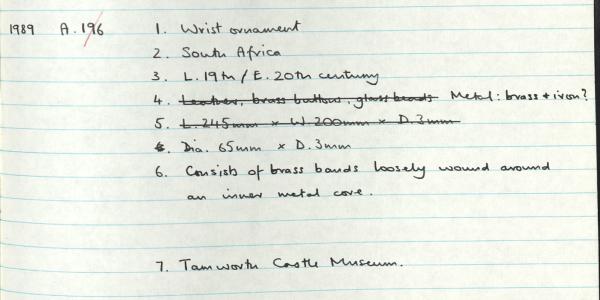 1989 A.196 1. Wrist ornament
2. South Africa
3. L.19th / E. 20th century
4. Leather, brass buttons, glass beads Metal: brass + iron?
5. L.245mm × W.200mm × D.3mm
Dia. 65mm × D.3mm
6. Consists of brass bands loosely wound around
an inner metal core.
7. Tamworth Castle Museum.